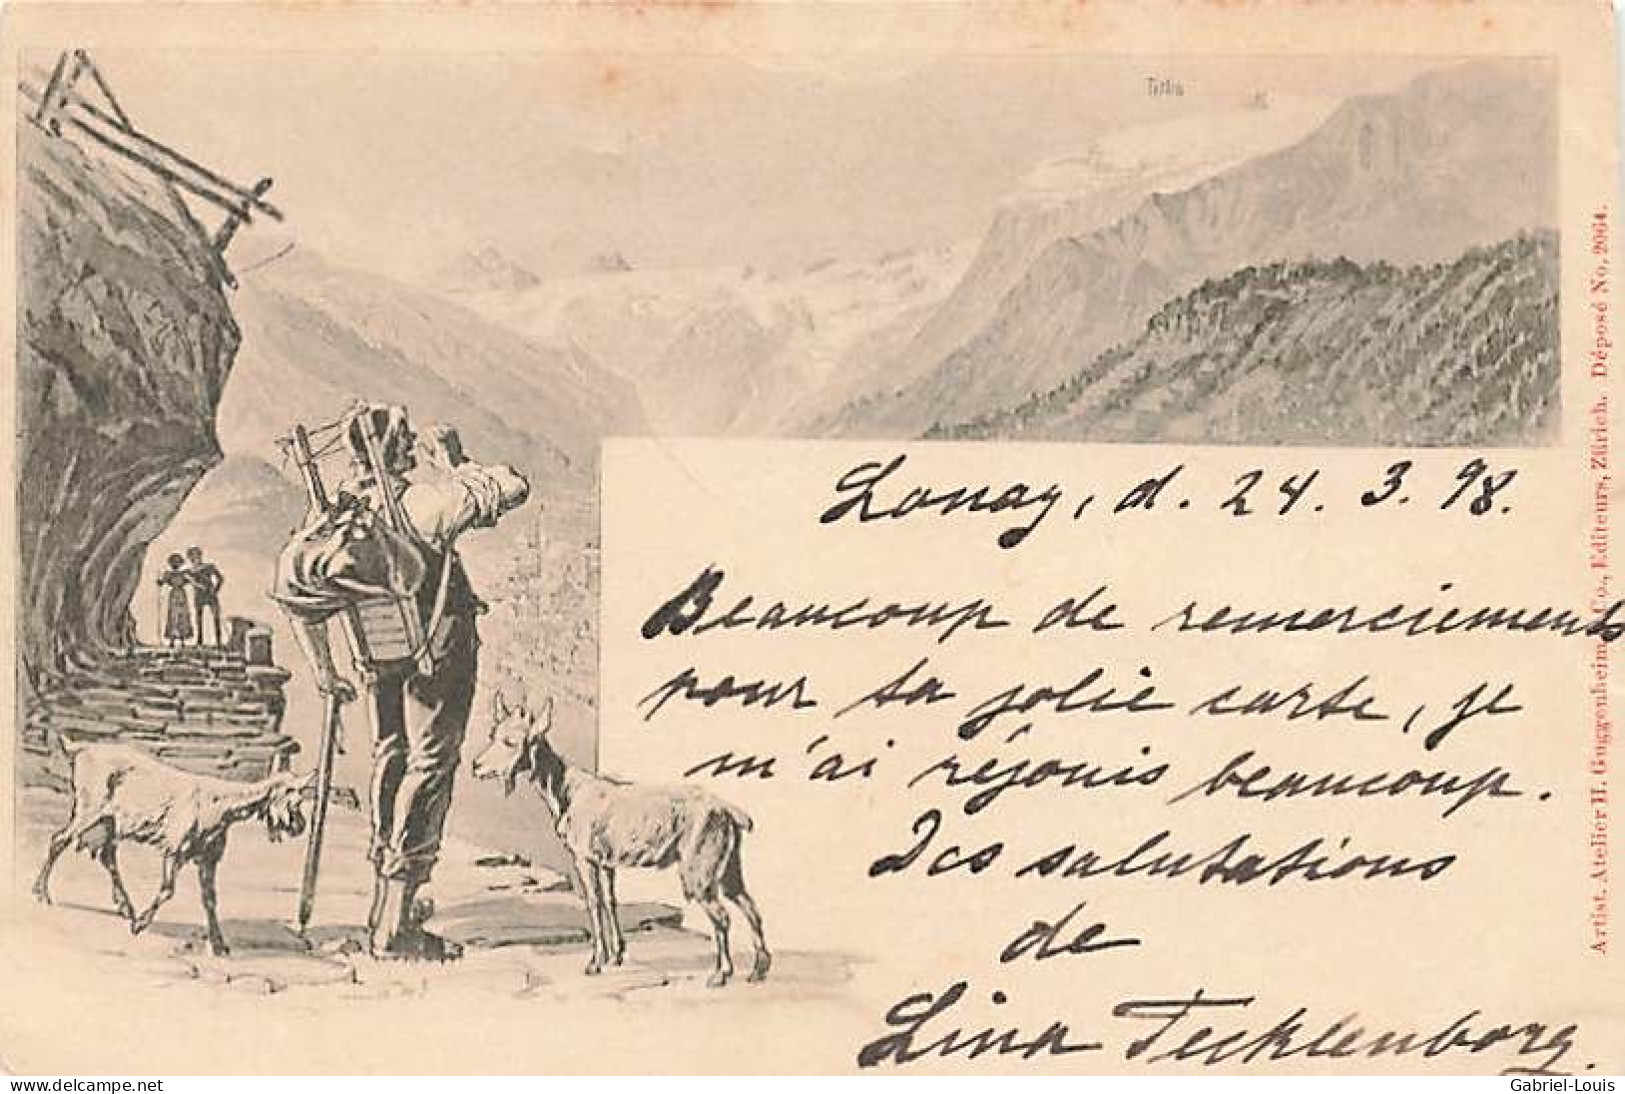 Lonay, d. 24. 3. 98.
Beaucoup de remerciements
pour ta jolie carte, je
m'ai réjouis beaucoup.
Des salutations
de
Lina Tecklenborg.
Artist. Atelier H. Guggenheim & Co., Editeurs, Zürich. Déposé No. 2064.
www.delcampe.net
Gabriel-Louis